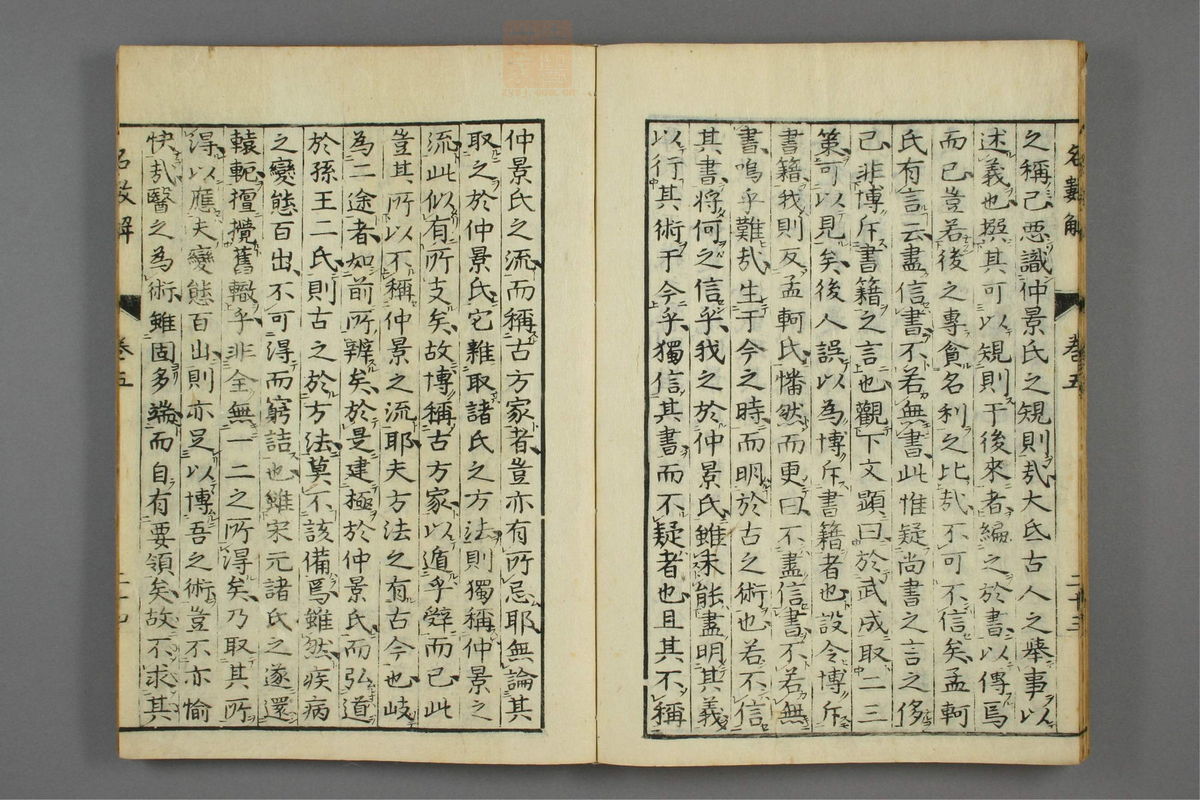 名數解
卷五
之稱已惡識仲景氏之規則哉大氐古人之舉事以
述義也撰其可以規則于後來者編之於書以傳焉
而已豈若後之專貪名利之比哉不可不信矣孟軻
氏有言云盡信書不若無書此惟疑尚書之言之侈
已非博斥書籍之言也觀下文顯曰於武成取二三
策可以見矣後人誤以為博斥書籍者也設令博斥
書籍我則反孟軻氏憣然而更曰不盡信書不若無
書嗚乎難哉生于今之時而明於古之術也若不信
其書將何之信乎我之於仲景氏雖未能盡明其義
以行其術于今乎獨信其書而不疑者也且其不稱
仲景氏之流而稱古方家者豈亦有所忌耶無論其
取之於仲景氏它雜取諸氏之方法則獨稱仲景之
流此似有所支矣故博稱古方家以遁乎辟而已此
豈其所以不稱仲景之流耶夫方法之有古今也岐
為二途者如前所辨矣於是建極於仲景氏而弘道
於孫王二氏則古之於方法莫不該備焉雖然疾病
之變態百出不可得而窮詰也雖宋元諸氏之遂還
轅軛擅攪舊轍乎非全無一二之所得矣乃取其所
得以應夫變態百出則亦足以博吾之術豈不亦愉
快哉醫之為術雖固多端而自有要領矣故不求其
名數解
卷五